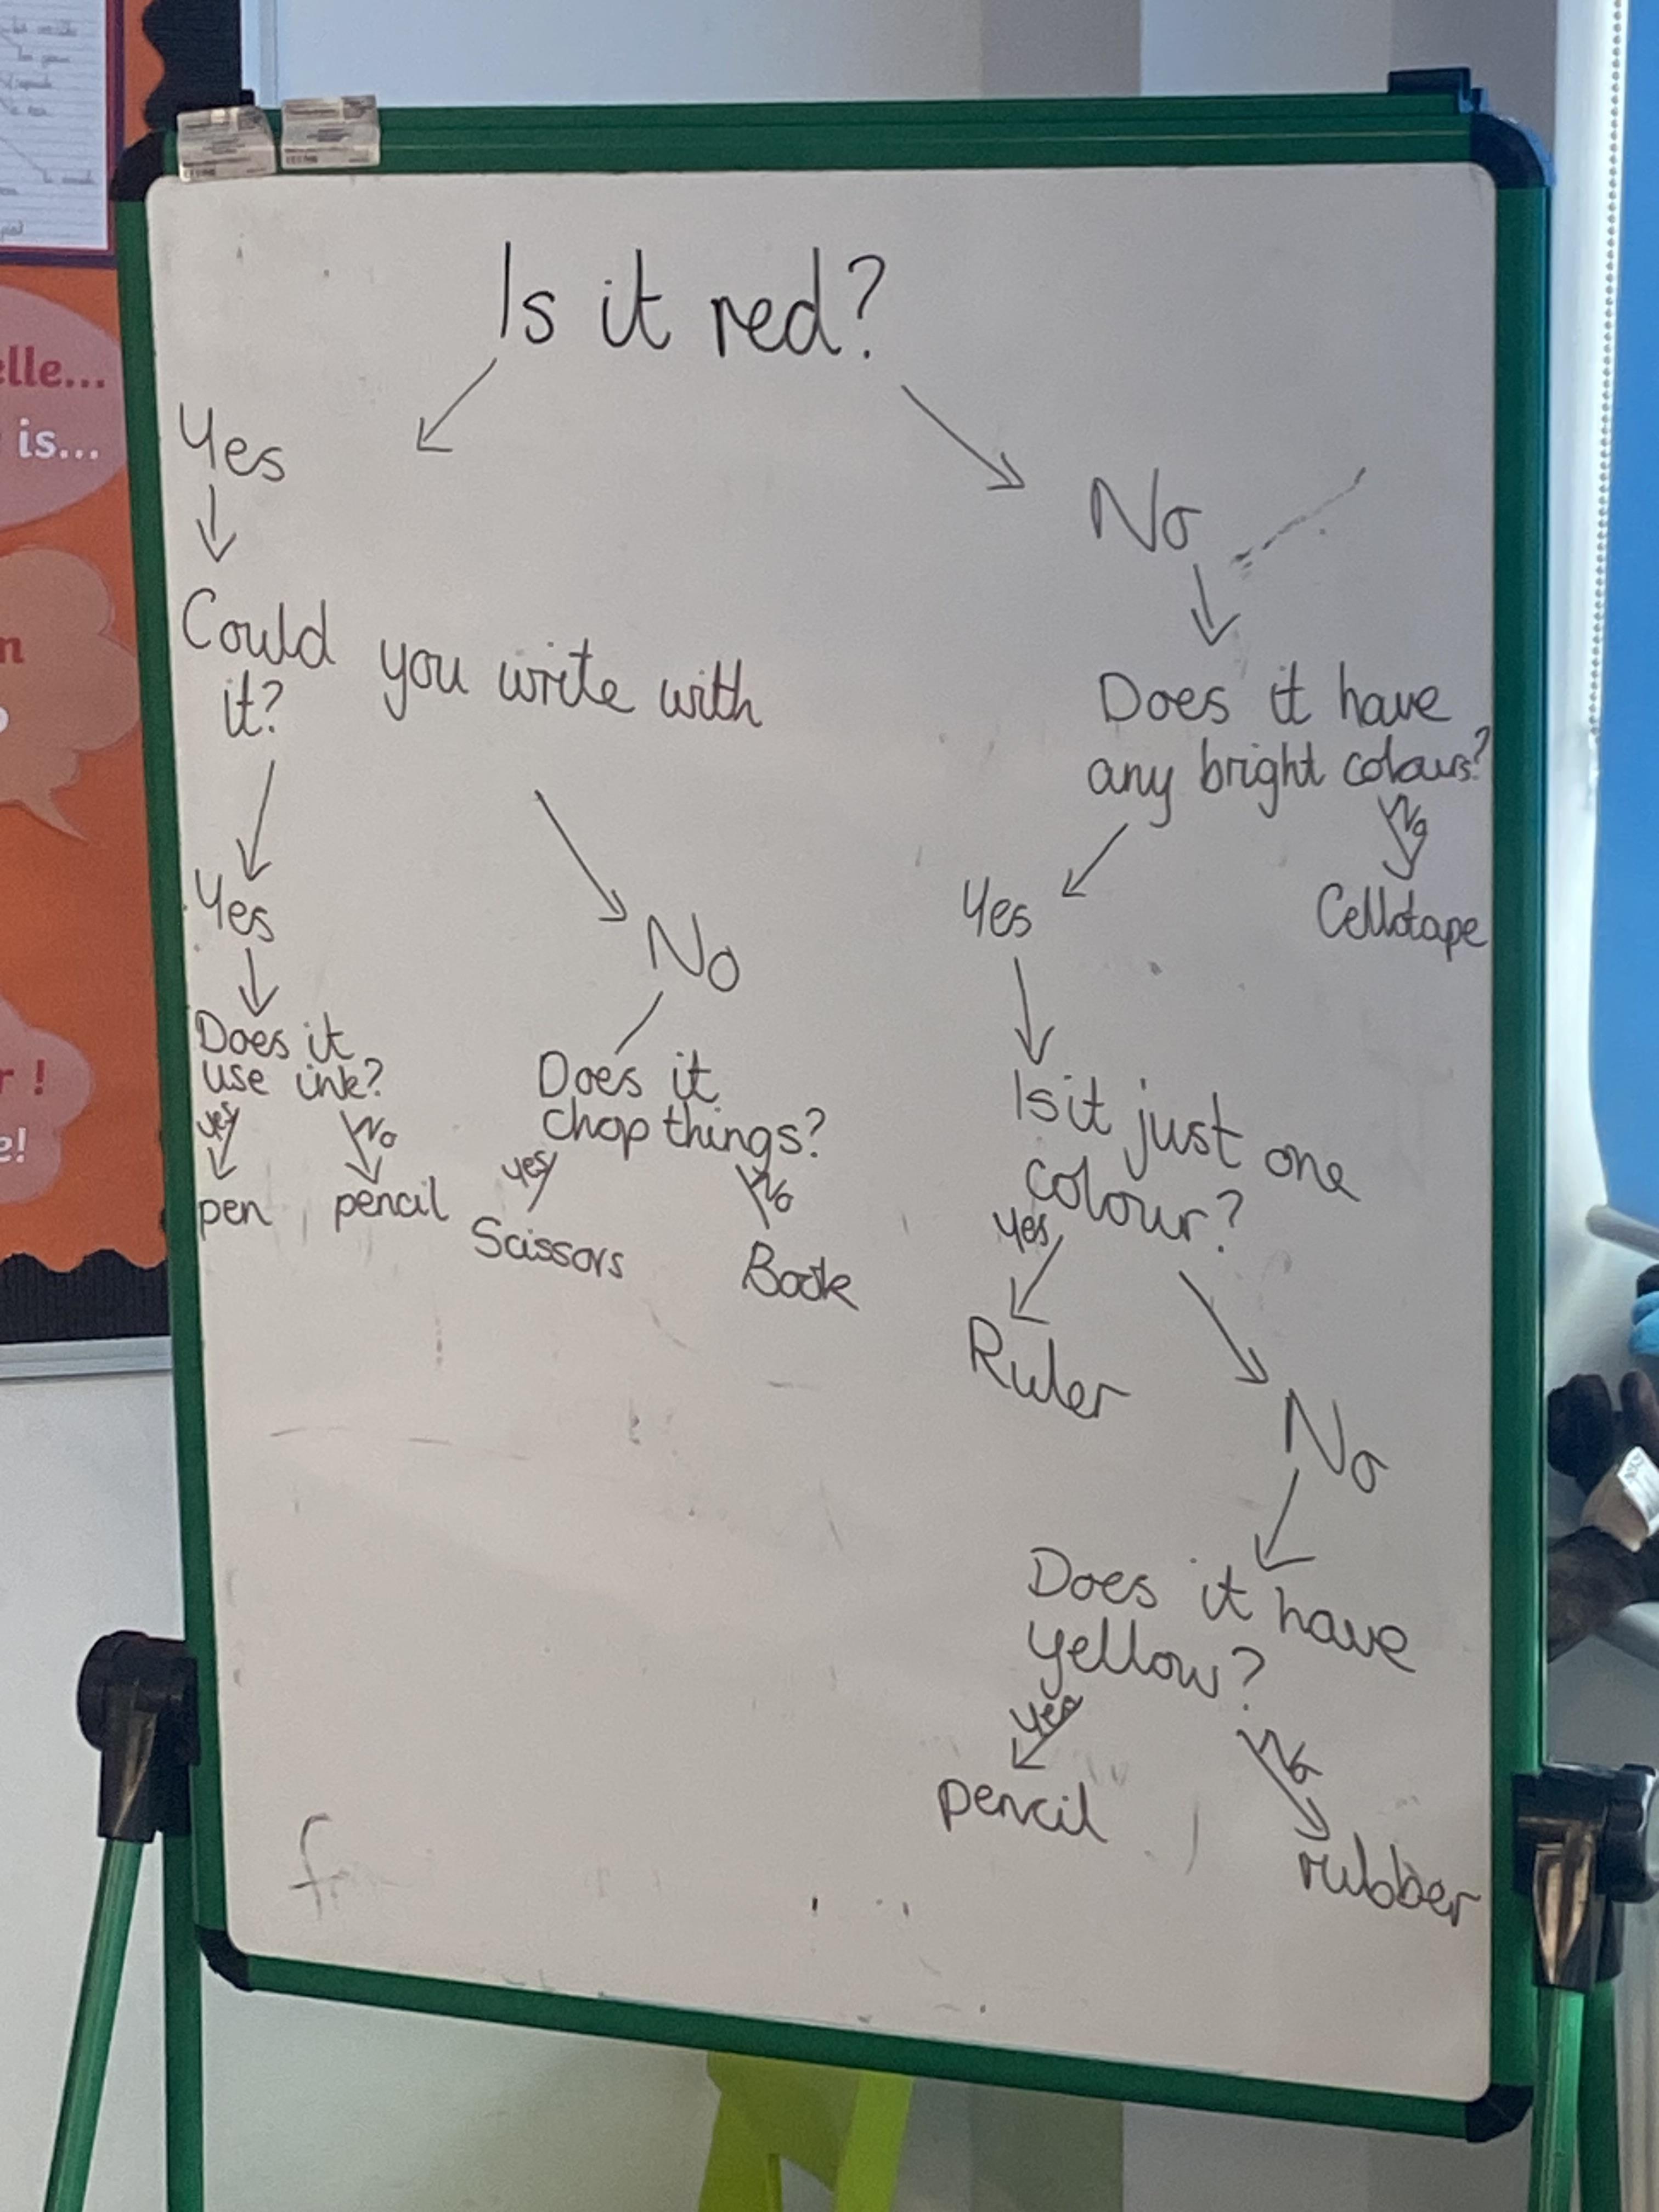 Is it red?
Yes
No
Could you write with
it?
Does it have
any bright colours?
No
Yes
No
Yes
Cellotape
Does it
use ink?
Yes
No
pen
pencil
Does it
chop things?
yes
No
Scissors
Book
Is it just one
colour?
yes
Ruler
No
Does it have
yellow?
yes
No
pencil
rubber
f
elle...
is...
r !
e!